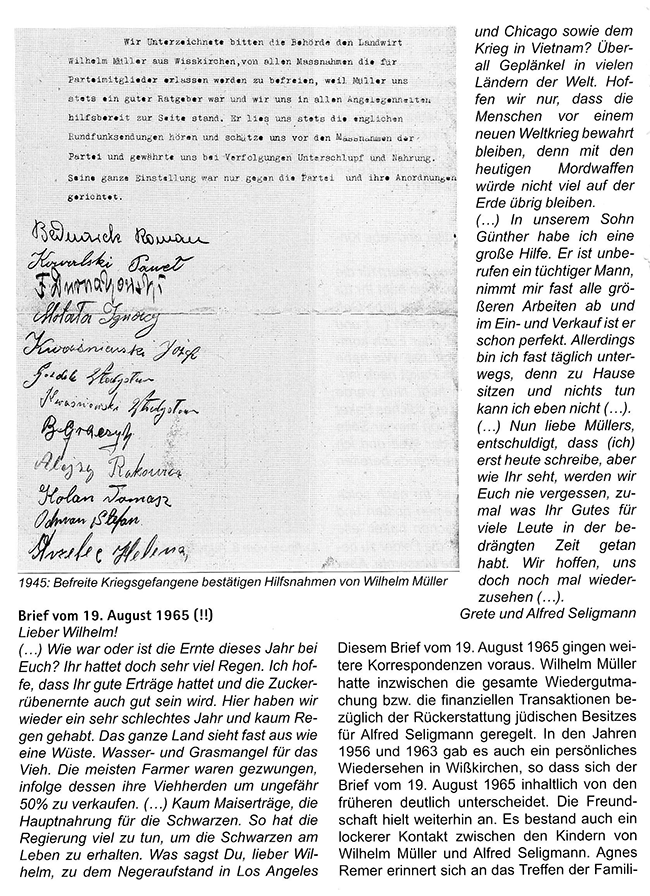 Wir Unterzeichnete bitten die Behörde den Landwirt
Wilhelm Müller aus Wisskirchen,von allen Massnahmen die für
Parteimitglieder erlassen werden zu befreien, weil Müller uns
stets ein guter Ratgeber war und wir uns in allen Angelegenheiten
hilfsbereit zur Seite stand. Er lies uns stets die englichen
Rundfunksendungen hören und schützte uns vor den Massnahmen der
Partei und gewährte uns bei Verfolgungen Unterschlupf und Nahrung.
Seine ganze Einstellung war nur gegen die Partei und ihre Anordnungen
gerichtet.
Roman
Kowalski
Ignacy
Kwaśniewski Józef
Kwaśniewski
Alojzy
Kolan Tomasz
Stefan
Helena
1945: Befreite Kriegsgefangene bestätigen Hilfsnahmen von Wilhelm Müller
Brief vom 19. August 1965 (!!)
Lieber Wilhelm!
(…) Wie war oder ist die Ernte dieses Jahr bei
Euch? Ihr hattet doch sehr viel Regen. Ich hof-
fe, dass Ihr gute Erträge hattet und die Zucker-
rübenernte auch gut sein wird. Hier haben wir
wieder ein sehr schlechtes Jahr und kaum Re-
gen gehabt. Das ganze Land sieht fast aus wie
eine Wüste. Wasser- und Grasmangel für das
Vieh. Die meisten Farmer waren gezwungen,
infolge dessen ihre Viehherden um ungefähr
50% zu verkaufen. (…) Kaum Maiserträge, die
Hauptnahrung für die Schwarzen. So hat die
Regierung viel zu tun, um die Schwarzen am
Leben zu erhalten. Was sagst Du, lieber Wil-
helm, zu dem Negeraufstand in Los Angeles
und Chicago sowie dem
Krieg in Vietnam? Über-
all Geplänkel in vielen
Ländern der Welt. Hof-
fen wir nur, dass die
Menschen vor einem
neuen Weltkrieg bewahrt
bleiben, denn mit den
heutigen Mordwaffen
würde nicht viel auf der
Erde übrig bleiben.
(…) In unserem Sohn
Günther habe ich eine
große Hilfe. Er ist unbe-
rufen ein tüchtiger Mann,
nimmt mir fast alle grö-
ßeren Arbeiten ab und
im Ein- und Verkauf ist er
schon perfekt. Allerdings
bin ich fast täglich unter-
wegs, denn zu Hause
sitzen und nichts tun
kann ich eben nicht (…).
(…) Nun liebe Müllers,
entschuldigt, dass (ich)
erst heute schreibe, aber
wie Ihr seht, werden wir
Euch nie vergessen, zu-
mal was Ihr Gutes für
viele Leute in der be-
drängten Zeit getan
habt. Wir hoffen, uns
doch noch mal wieder-
zusehen (…).
Grete und Alfred Seligmann
Diesem Brief vom 19. August 1965 gingen wei-
tere Korrespondenzen voraus. Wilhelm Müller
hatte inzwischen die gesamte Wiedergutma-
chung bzw. die finanziellen Transaktionen be-
züglich der Rückerstattung jüdischen Besitzes
für Alfred Seligmann geregelt. In den Jahren
1956 und 1963 gab es auch ein persönliches
Wiedersehen in Wißkirchen, so dass sich der
Brief vom 19. August 1965 inhaltlich von den
früheren deutlich unterscheidet. Die Freund-
schaft hielt weiterhin an. Es bestand auch ein
lockerer Kontakt zwischen den Kindern von
Wilhelm Müller und Alfred Seligmann. Agnes
Remer erinnert sich an das Treffen der Famili-